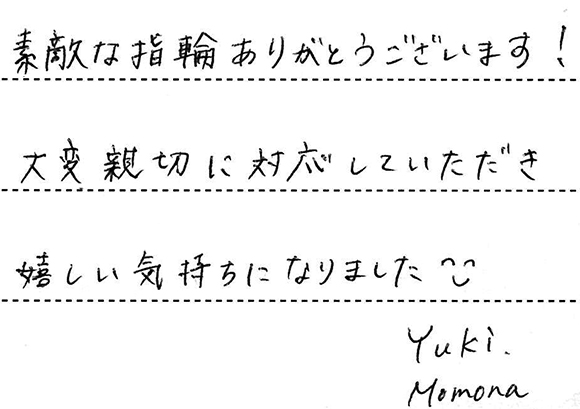 素敵な指輪ありがとうございます!
大変親切に対応していただき
嬉しい気持ちになりました
Yuki.
Momona